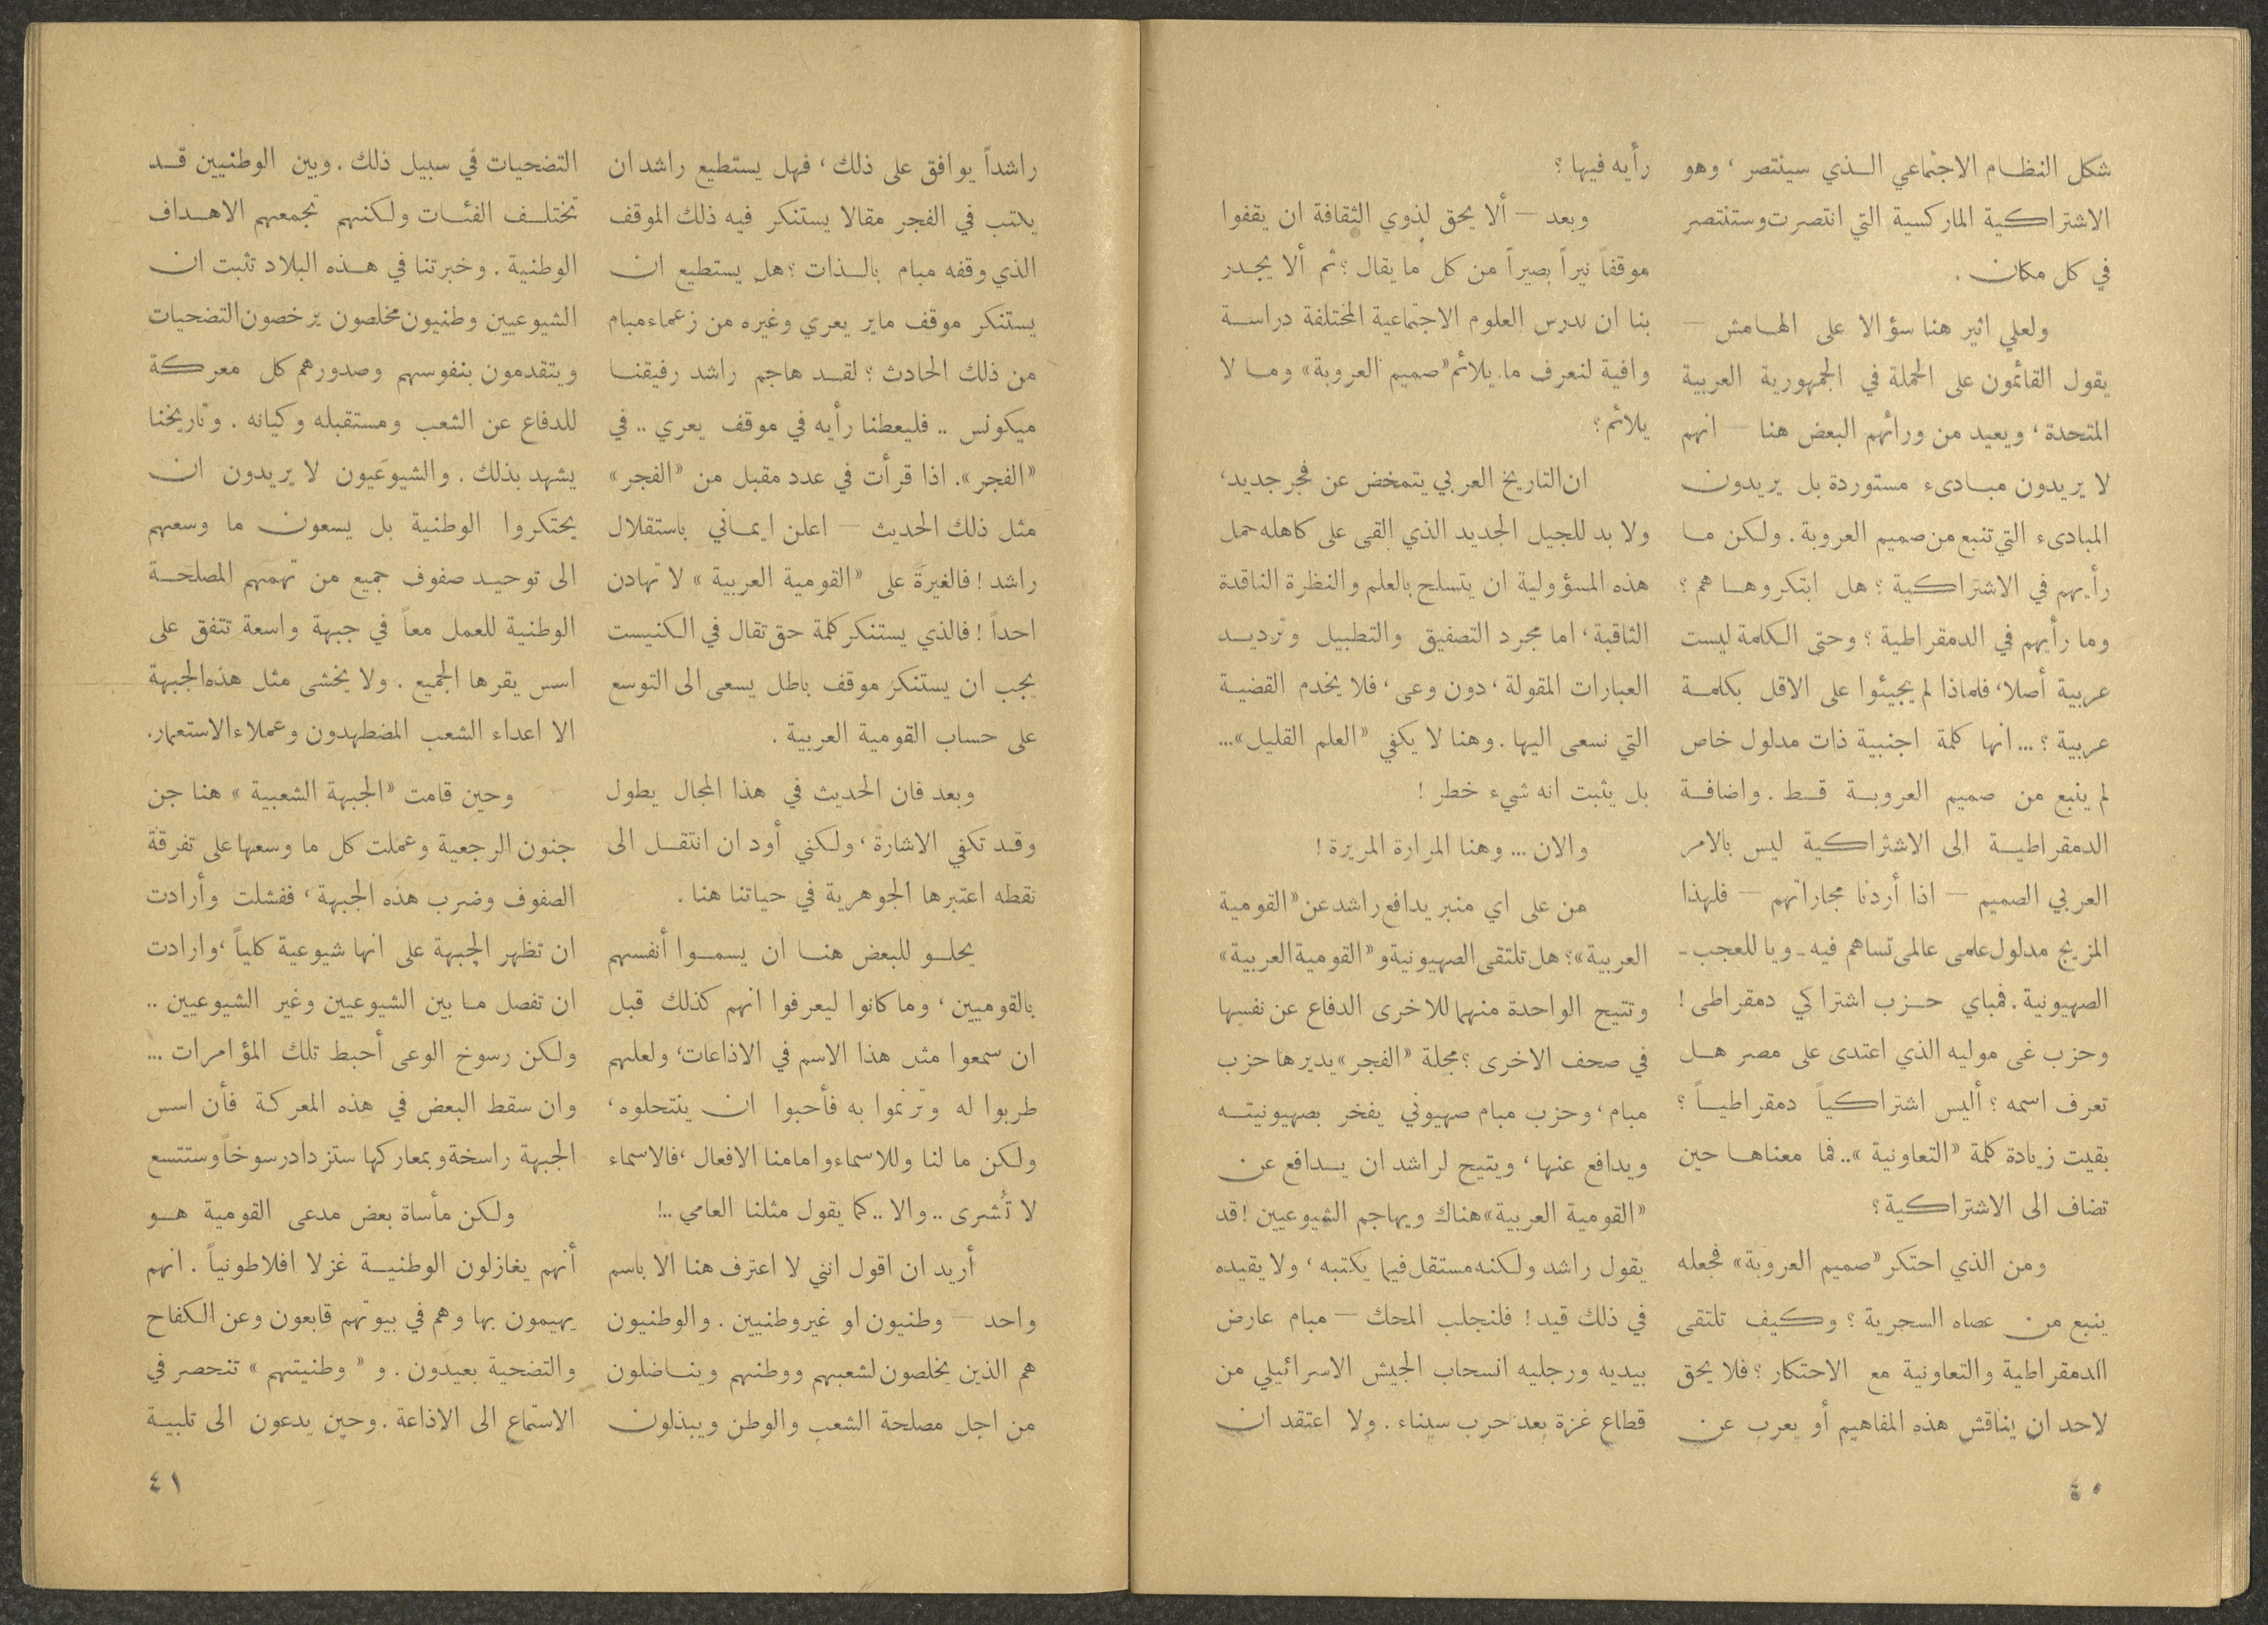 شكل النظام الاجتماعي الذي سينتصر ، وهو
الاشتراكية الماركسية التي انتصرت وستنتصر
في كل مكان .
ولعلي اثير هنا سؤالا على الهامش —
يقول القائمون على الحملة في الجمهورية العربية
المتحدة ، ويعيد من ورائهم البعض هنا — انهم
لا يريدون مبادىء مستوردة بل يريدون
المبادىء التي تنبع من صميم العروبة . ولكن ما
رأيهم في الاشتراكية ؟ هل ابتكروها هم ؟
وما رأيهم في الدمقراطية ؟ وحتى الكلمة ليست
عربية أصلا ، فلماذا لم يجيئوا على الاقل بكلمة
عربية ؟ ... انها كلمة اجنبية ذات مدلول خاص
لم ينبع من صميم العروبة قط . واضافة
الدمقراطية الى الاشتراكية ليس بالامر
العربي الصميم — اذا أردنا مجاراتهم — فلهذا
المزيج مدلول علمي عالمي تساهم فيه - ويا للعجب -
الصهيونية . فمباي حزب اشتراكي دمقراطي !
وحزب غي موليه الذي اعتدى على مصر هل
تعرف اسمه ؟ أليس اشتراكياً دمقراطياً ؟
بقيت زيادة كلمة «التعاونية » .. فما معناها حين
تضاف الى الاشتراكية ؟
ومن الذي احتكر «صميم العروبة» فجعله
ينبع من عصاه السحرية ؟ وكيف تلتقي
الدمقراطية والتعاونية مع الاحتكار ؟ فلا يحق
لاحد ان يناقش هذه المفاهيم أو يعرب عن
رأيه فيها ؟
وبعد — ألا يحق لذوي الثقافة ان يقفوا
موقفاً نيراً بصيراً من كل ما يقال ؟ ثم ألا يجدر
بنا ان ندرس العلوم الاجتماعية المختلفة دراسة
وافية لنعرف ما يلائم «صميم العروبة» وما لا
يلائم ؟
ان التاريخ العربي يتمخض عن فجر جديد ،
ولا بد للجيل الجديد الذي القى على كاهله حمل
هذه المسؤولية ان يتسلح بالعلم والنظرة الناقدة
الثاقبة ، اما مجرد التصفيق والتطبيل وترديد
العبارات المقولة ، دون وعى ، فلا يخدم القضية
التي نسعى اليها . وهنا لا يكفي «العلم القليل» ...
بل يثبت انه شيء خطر !
والان ... وهنا المرارة المريرة !
من على اي منبر يدافع راشد عن «القومية
العربية» ؟ هل تلتقى الصهيونية و «القومية العربية»
وتتيح الواحدة منهما للاخرى الدفاع عن نفسها
في صحف الاخرى ؟ مجلة «الفجر» يديرها حزب
مبام ، وحزب مبام صهيوني يفخر بصهيونيته
ويدافع عنها ، ويتيح لراشد ان يدافع عن
«القومية العربية» هناك ويهاجم الشيوعيين ! قد
يقول راشد ولكنه مستقل فيما يكتبه ، ولا يقيده
في ذلك قيد ! فلنجلب المحك — مبام عارض
بيديه ورجليه انسحاب الجيش الاسرائيلي من
قطاع غزة بعد حرب سيناء . ولا اعتقد ان
٤٠
راشداً يوافق على ذلك ، فهل يستطيع راشد ان
يكتب في الفجر مقالا يستنكر فيه ذلك الموقف
الذي وقفه مبام بالذات ؟ هل يستطيع ان
يستنكر موقف ماير يعري وغيره من زعماء مبام
من ذلك الحادث ؟ لقد هاجم راشد رفيقنا
ميكونس .. فليعطنا رأيه في موقف يعري .. في
«الفجر» . اذا قرأت في عدد مقبل من «الفجر»
مثل ذلك الحديث — اعلن ايماني باستقلال
راشد ! فالغيرة على «القومية العربية » لا تهادن
احداً ! فالذي يستنكر كلمة حق تقال في الكنيست
يجب ان يستنكر موقف باطل يسعى الى التوسع
على حساب القومية العربية .
وبعد فان الحديث في هذا المجال يطول
وقد تكفي الاشارة ، ولكني أود ان انتقل الى
نقطه اعتبرها الجوهرية في حياتنا هنا .
يحلو للبعض هنا ان يسموا أنفسهم
بالقوميين ، وما كانوا ليعرفوا انهم كذلك قبل
ان سمعوا مثل هذا الاسم في الاذاعات ، ولعلهم
طربوا له وترنموا به فأحبوا ان ينتحلوه ،
ولكن ما لنا وللاسماء وامامنا الافعال ، فالاسماء
لا تُشرى .. والا .. كما يقول مثلنا العامي ..!
أريد ان اقول انني لا اعترف هنا الا باسم
واحد — وطنيون او غير وطنيين . والوطنيون
هم الذين يخلصون لشعبهم ووطنهم ويناضلون
من اجل مصلحة الشعب والوطن ويبذلون
التضحيات في سبيل ذلك . وبين الوطنيين قد
تختلف الفئات ولكنهم تجمعهم الاهداف
الوطنية . وخبرتنا في هذه البلاد تثبت ان
الشيوعيين وطنيون مخلصون يرخصون التضحيات
ويتقدمون بنفوسهم وصدورهم كل معركة
للدفاع عن الشعب ومستقبله وكيانه . وتاريخنا
يشهد بذلك . والشيوعيون لا يريدون ان
يحتكروا الوطنية بل يسعون ما وسعهم
الى توحيد صفوف جميع من تهمهم المصلحة
الوطنية للعمل معاً في جبهة واسعة تتفق على
اسس يقرها الجميع . ولا يخشى مثل هذه الجبهة
الا اعداء الشعب المضطهدون وعملاء الاستعمار .
وحين قامت «الجبهة الشعبية » هنا جن
جنون الرجعية وعملت كل ما وسعها على تفرقة
الصفوف وضرب هذه الجبهة ، ففشلت وأرادت
ان تظهر الجبهة على انها شيوعية كلياً ، وارادت
ان تفصل ما بين الشيوعيين وغير الشيوعيين ..
ولكن رسوخ الوعى أحبط تلك المؤامرات ...
وان سقط البعض في هذه المعركة فأن اسس
الجبهة راسخة وبمعاركها ستزداد رسوخاً وستتسع
ولكن مأساة بعض مدعى القومية هو
أنهم يغازلون الوطنية غزلا افلاطونياً . انهم
يهيمون بها وهم في بيوتهم قابعون وعن الكفاح
والتضحية بعيدون . و « وطنيتهم » تنحصر في
الاستماع الى الاذاعة . وحين يدعون الى تلبية
٤١